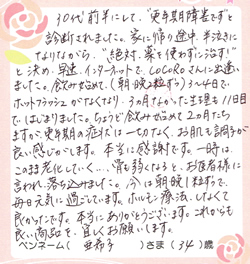 30代前半にして、"更年期障害です"と
診断されました。家に帰り途中、半泣きに
なりながら、"絶対、薬を使わずに治す!"
と決め、早速、インターネットで、LOCOROさんに出逢い
ました。飲み始めて(朝・晩2粒ずつ)3〜4日で、
ホットフラッシュがなくなり、3ヵ月なかった生理も11日目
で、はじまりました。ちょうど飲み始めて2ヵ月たち
ますが、更年期の症状は一切なく、お肌も調子が
良い感じがします。本当に感謝です。一時は、
このまま老化していく…、骨も弱くなると、お医者様に
言われ、落ち込めました。今は朝・晩1粒ずつで、
毎日元気に過ごしています。ホルモン療法、しなくて
良かったです。本当にありがとうございます。これからも
良い商品を、宜しくお願いします。
ペンネーム( 亜希子 )さま(34)歳